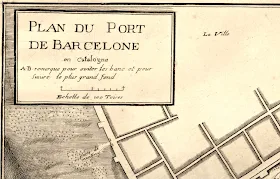 PLAN DU PORT
DE BARCELONE
en Catalogne
A.B. remarque pour eviter les bancs et pour
suivre le plus grand fond
Echelle de 100 Toises
La Ville